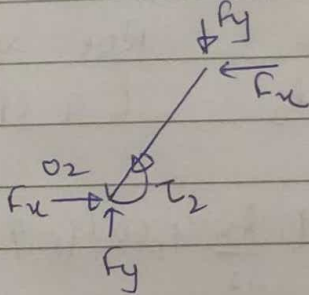 Fy
Fx
O2
Fx τ2
Fy